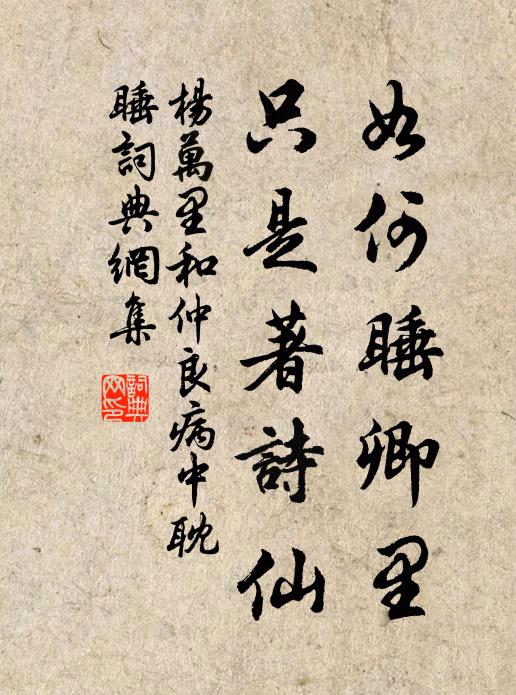 如何睡卿里
只是著詩仙
楊萬里和仲良病中耽
睡詞典網集
詞典网印